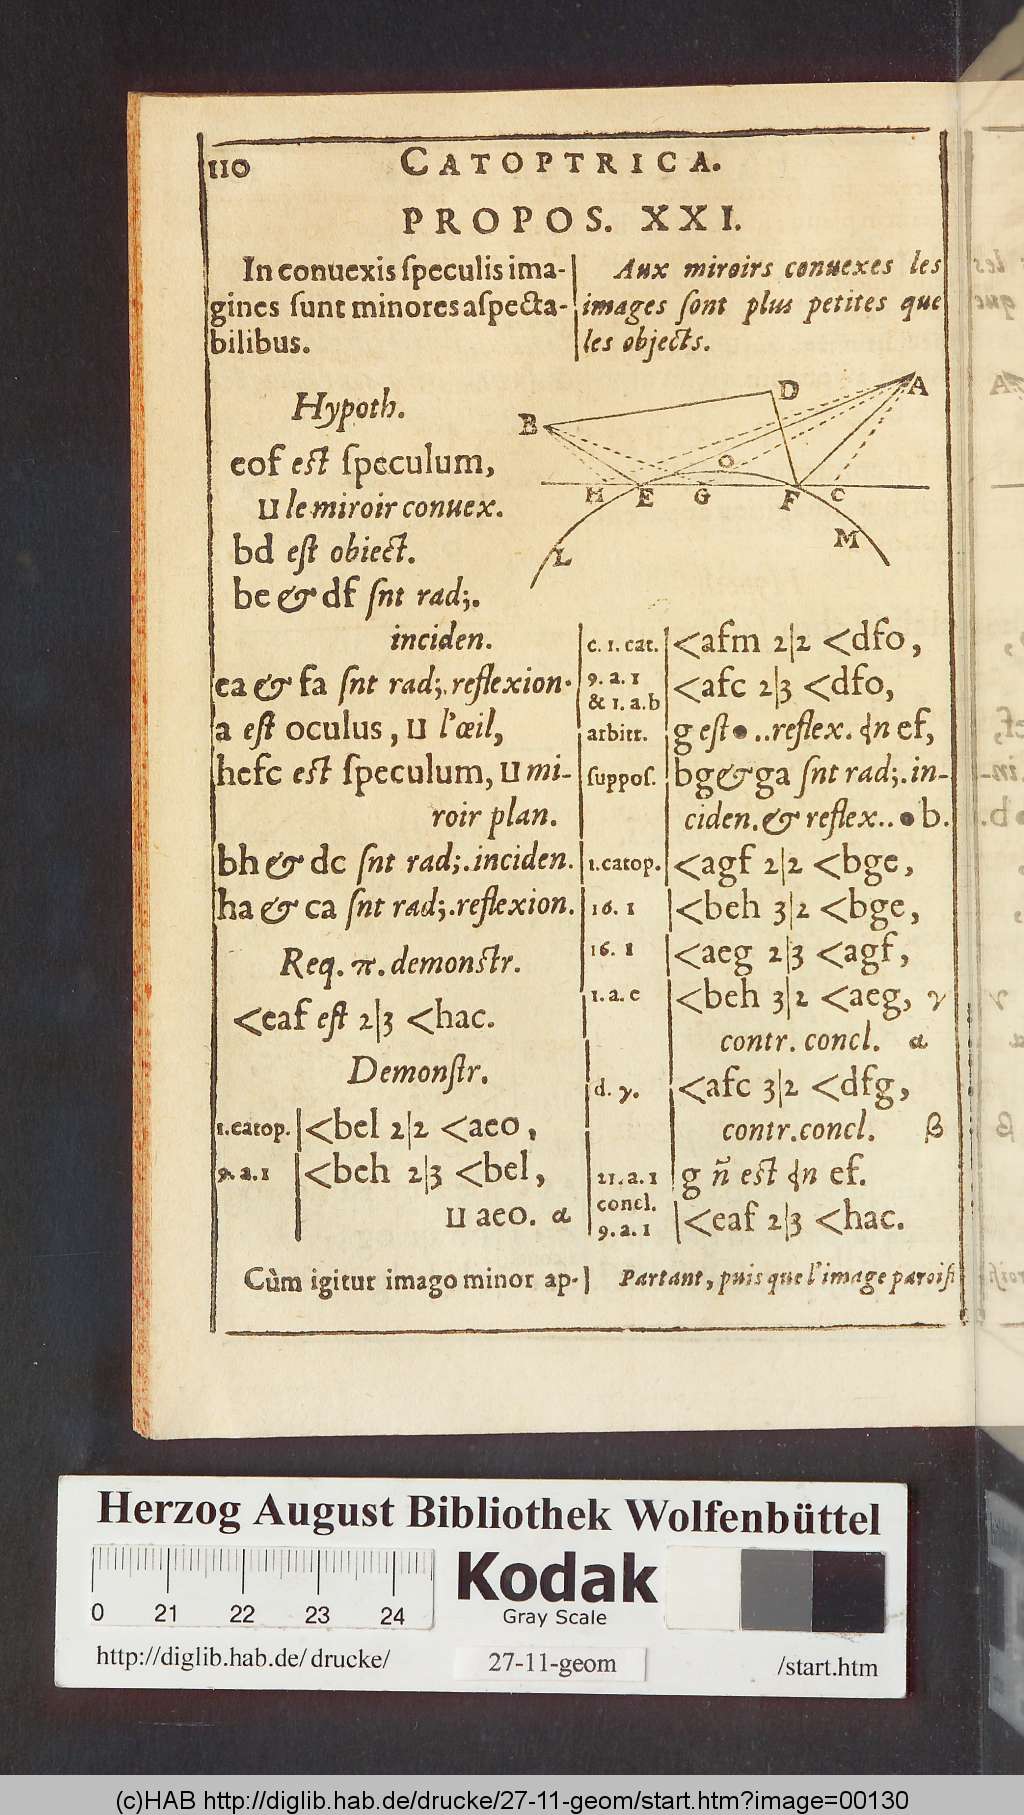 110
CATOPTRICA.
PROPOS. XXI.
In conuexis ſpeculis ima-
gines ſunt minores aſpecta-
bilibus.
Aux miroirs conuexes les
images ſont plus petites que
les objects.
Hypoth.
eof eſt ſpeculum,
⊔ le miroir conuex.
bd eſt obiect.
be & df ſnt rad;.
inciden.
ea & fa ſnt rad;. reflexion.
a eſt oculus, ⊔ l'œil,
hefc eſt ſpeculum, ⊔ mi-
roir plan.
bh & dc ſnt rad;. inciden.
ha & ca ſnt rad;. reflexion.
Req. π. demonſtr.
<eaf eſt 2|3 <hac.
Demonſtr.
1. catop. | <bel 2|2 <aeo,
9. a. 1 | <beh 2|3 <bel,
⊔ aeo. α
B D A
O
H E G F C
L M
c. 1. cat. | <afm 2|2 <dfo,
9. a. 1
& 1. a. b | <afc 2|3 <dfo,
arbitr. | g eſt • .. reflex. ɖn ef,
ſuppoſ. | bg & ga ſnt rad;. in-
ciden. & reflex.. • b.
1. catop. | <agf 2|2 <bge,
16. 1 | <beh 3|2 <bge,
16. 1 | <aeg 2|3 <agf,
1. a. e | <beh 3|2 <aeg, γ
contr. concl. α
d. γ. | <afc 3|2 <dfg,
contr. concl. β
21. a. 1 | g ñ eſt ɖn ef.
concl.
9. a. 1 | <eaf 2|3 <hac.
Cùm igitur imago minor ap-
Partant, puis que l'image paroiſ
Herzog August Bibliothek Wolfenbüttel
0 21 22 23 24
Kodak
Gray Scale
http://diglib.hab.de/drucke/
27-11-geom
/start.htm
(c)HAB http://diglib.hab.de/drucke/27-11-geom/start.htm?image=00130